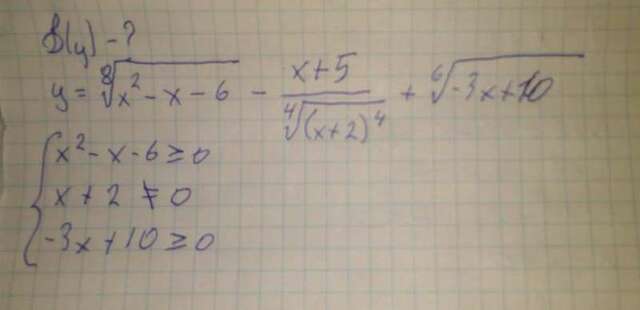 D(y) - ?
y = ⁸√(x² - x - 6) - (x+5)/⁴√((x+2)⁴) + ⁶√(-3x+10)
{ x² - x - 6 ≥ 0
x + 2 ≠ 0
-3x + 10 ≥ 0